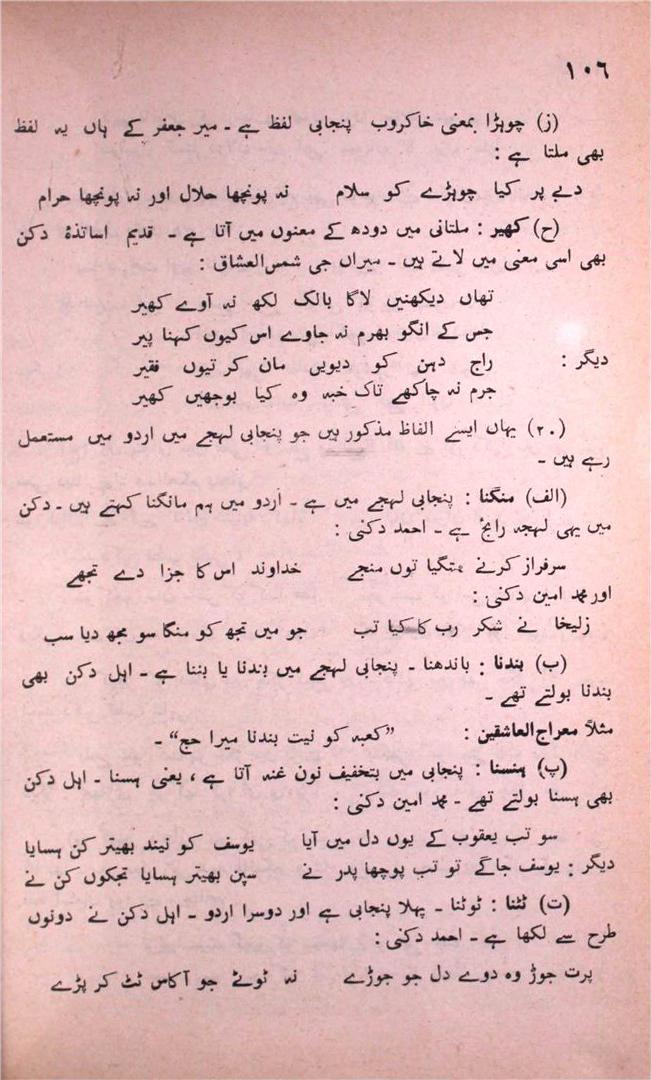 ١٠٦
(ز) چوہڑا بمعنی خاکروب پنجابی لفظ ہے ۔ میر جعفر کے ہاں یہ لفظ
بھی ملتا ہے :
دبے پر کیا چوہڑے کو سلام نہ پونچھا حلال اور نہ پونچھا حرام
(ح) کھیر : ملتانی میں دودھ کے معنوں میں آتا ہے ۔ قدیم اساتذۂ دکن
بھی اسی معنی میں لاتے ہیں ۔ میراں جی شمس العشاق :
تھاں دیکھنیں لاگا بالک لکھ نہ آوے کھیر
جس کے انگو بھرم نہ جاوے اس کیوں کہنا پیر
دیگر : راج دہن کو دیویں مان کر تیوں فقیر
جرم نہ چاکھے تاک خبہ وہ کیا بوجھیں کھیر
(٢٠) یہاں ایسے الفاظ مذکور ہیں جو پنجابی لہجے میں اردو میں مستعمل
رہے ہیں ۔
(الف) منگنا : پنجابی لہجے میں ہے ۔ اُردو میں ہم مانگنا کہتے ہیں ۔ دکن
میں یہی لہجہ رایج ہے ۔ احمد دکنی :
سرفراز کرنے منگیا توں منجے خداوند اس کا جزا دے تجھے
اور محمد امین دکنی :
زلیخا نے شکر رب کا کیا تب جو میں تجھ کو منگا سو مجھ دیا سب
(ب) بندنا : باندھنا ۔ پنجابی لہجے میں بندنا یا بننا ہے ۔ اہل دکن بھی
بندنا بولتے تھے ۔
مثلاً معراج العاشقین : ”کعبہ کو نیت بندنا میرا حج“ ۔
(پ) ہنسنا : پنجابی میں بتخفیف نون غنہ آتا ہے ، یعنی ہسنا ۔ اہل دکن
بھی ہسنا بولتے تھے ۔ محمد امین دکنی :
سو تب یعقوب کے یوں دل میں آیا یوسف کو نیند بھیتر کن ہسایا
دیگر : یوسف جاگے تو تب پوچھا پدر نے سپن بھیتر ہسایا تجکوں کن نے
(ت) ٹٹنا : ٹوٹنا ۔ پہلا پنجابی ہے اور دوسرا اردو ۔ اہل دکن نے دونوں
طرح سے لکھا ہے ۔ احمد دکنی :
پرت جوڑ وہ دوے دل جو جوڑے نہ ٹوٹے جو آکاس ٹٹ کر پڑے